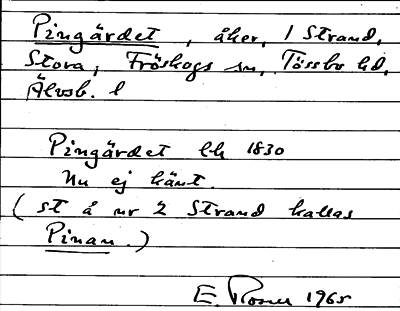 Pingärdet, åker, 1 Strand,
Stora, Fröskogs sn, Tössbo hd,
Älvsb. l
Pingärdet lh 1830
Nu ej känt.
(st å nr 2 Strand kallas
Pinan.)
E. Rosen 1965